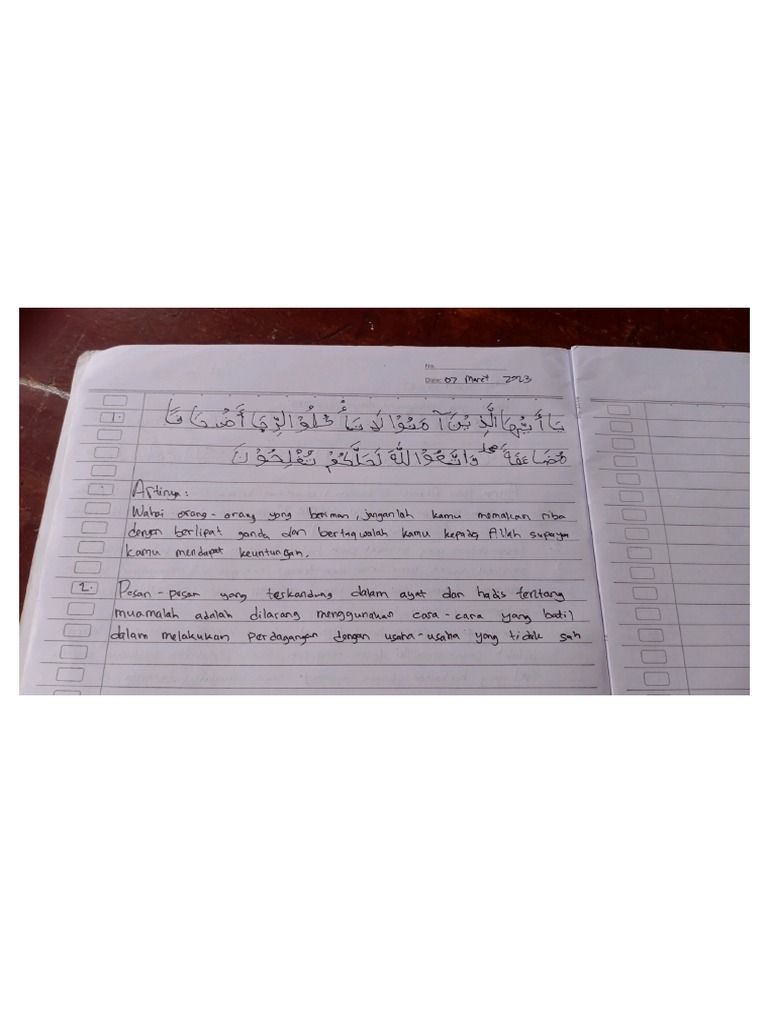 No.
Date: 07 Maret 2023
1. يَا أَيُّهَا الَّذِيْنَ آمَنُوْا لَا تَأْكُلُوْا الرِّبَا أَضْعَافًا
مُضَاعَفَةً ۖ وَاتَّقُوْا اللَّهَ لَعَلَّكُمْ تُفْلِحُوْنَ
Artinya:
Wahai orang-orang yang beriman, janganlah kamu memakan riba
dengan berlipat ganda dan bertaqwalah kamu kepada Allah supaya
kamu mendapat keuntungan.
2. Pesan-pesan yang terkandung dalam ayat dan hadis tentang
muamalah adalah dilarang menggunakan cara-cara yang batil
dalam melakukan perdagangan dengan usaha-usaha yang tidak sah